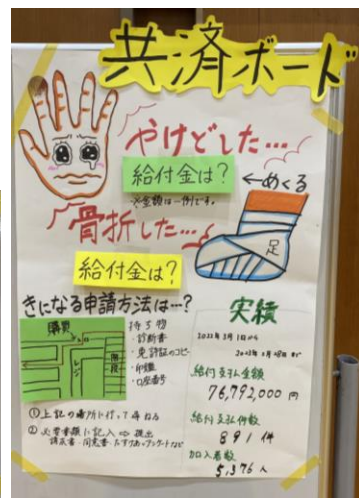 共済ボード
やけどした…
給付金は?
←めくる
※金額は一例です。
骨折した…
足
給付金は?
きになる申請方法は…?
購買
レジ
階段
持ち物
・診断書
・免許証のコピー
・印鑑
・口座番号
①上記の場所に行って尋ねる
②必要書類に記入⇒提出
請求書・同意書・たすけあいアンケートなど
実績
2022年3月1日から
2023年2月28日まで
給付支払金額
76,792,000円
給付支払件数
891件
加入者数
5,376人